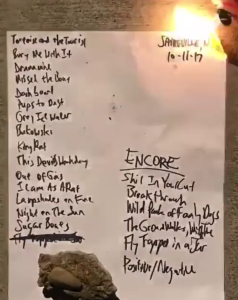 Tortoise and the Tourist
Bury Me With It
Dramamine
Missed the Boat
Dashboard
Pups to Dust
Grey Ice Water
Bukowski
King Rat
This Devil's Workday
Out of Gas
I Came As A Rat
Lampshades on Fire
Night on The Sun
Sugar Boats
Fly Trapped
10-11-17
ENCORE
Shit In Your Cut
Breakthrough
Wild Pack of Family Dogs
The Ground Walks, w/
Fly Trapped in a Jar
Positive/Negative